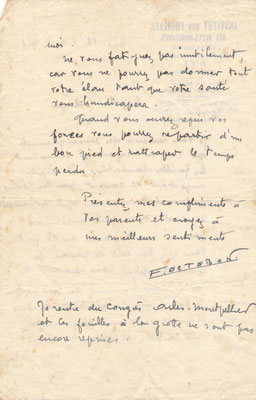 moi.
ne vous fatiguez pas inutilement,
car vous ne pourrez pas donner tout
votre élan tant que votre santé
vous handicapera.
Quand vous aurez repris vos
forces vous pourrez repartir d'un
bon pied et rattraper le temps
perdu
Présentez mes compliments à
vos parents et croyez à
mes meilleurs sentiments
E. OCTOBON.
Je rentre du congrès Arles-Montpellier
et les fouilles à la grotte ne sont pas
encore reprises.